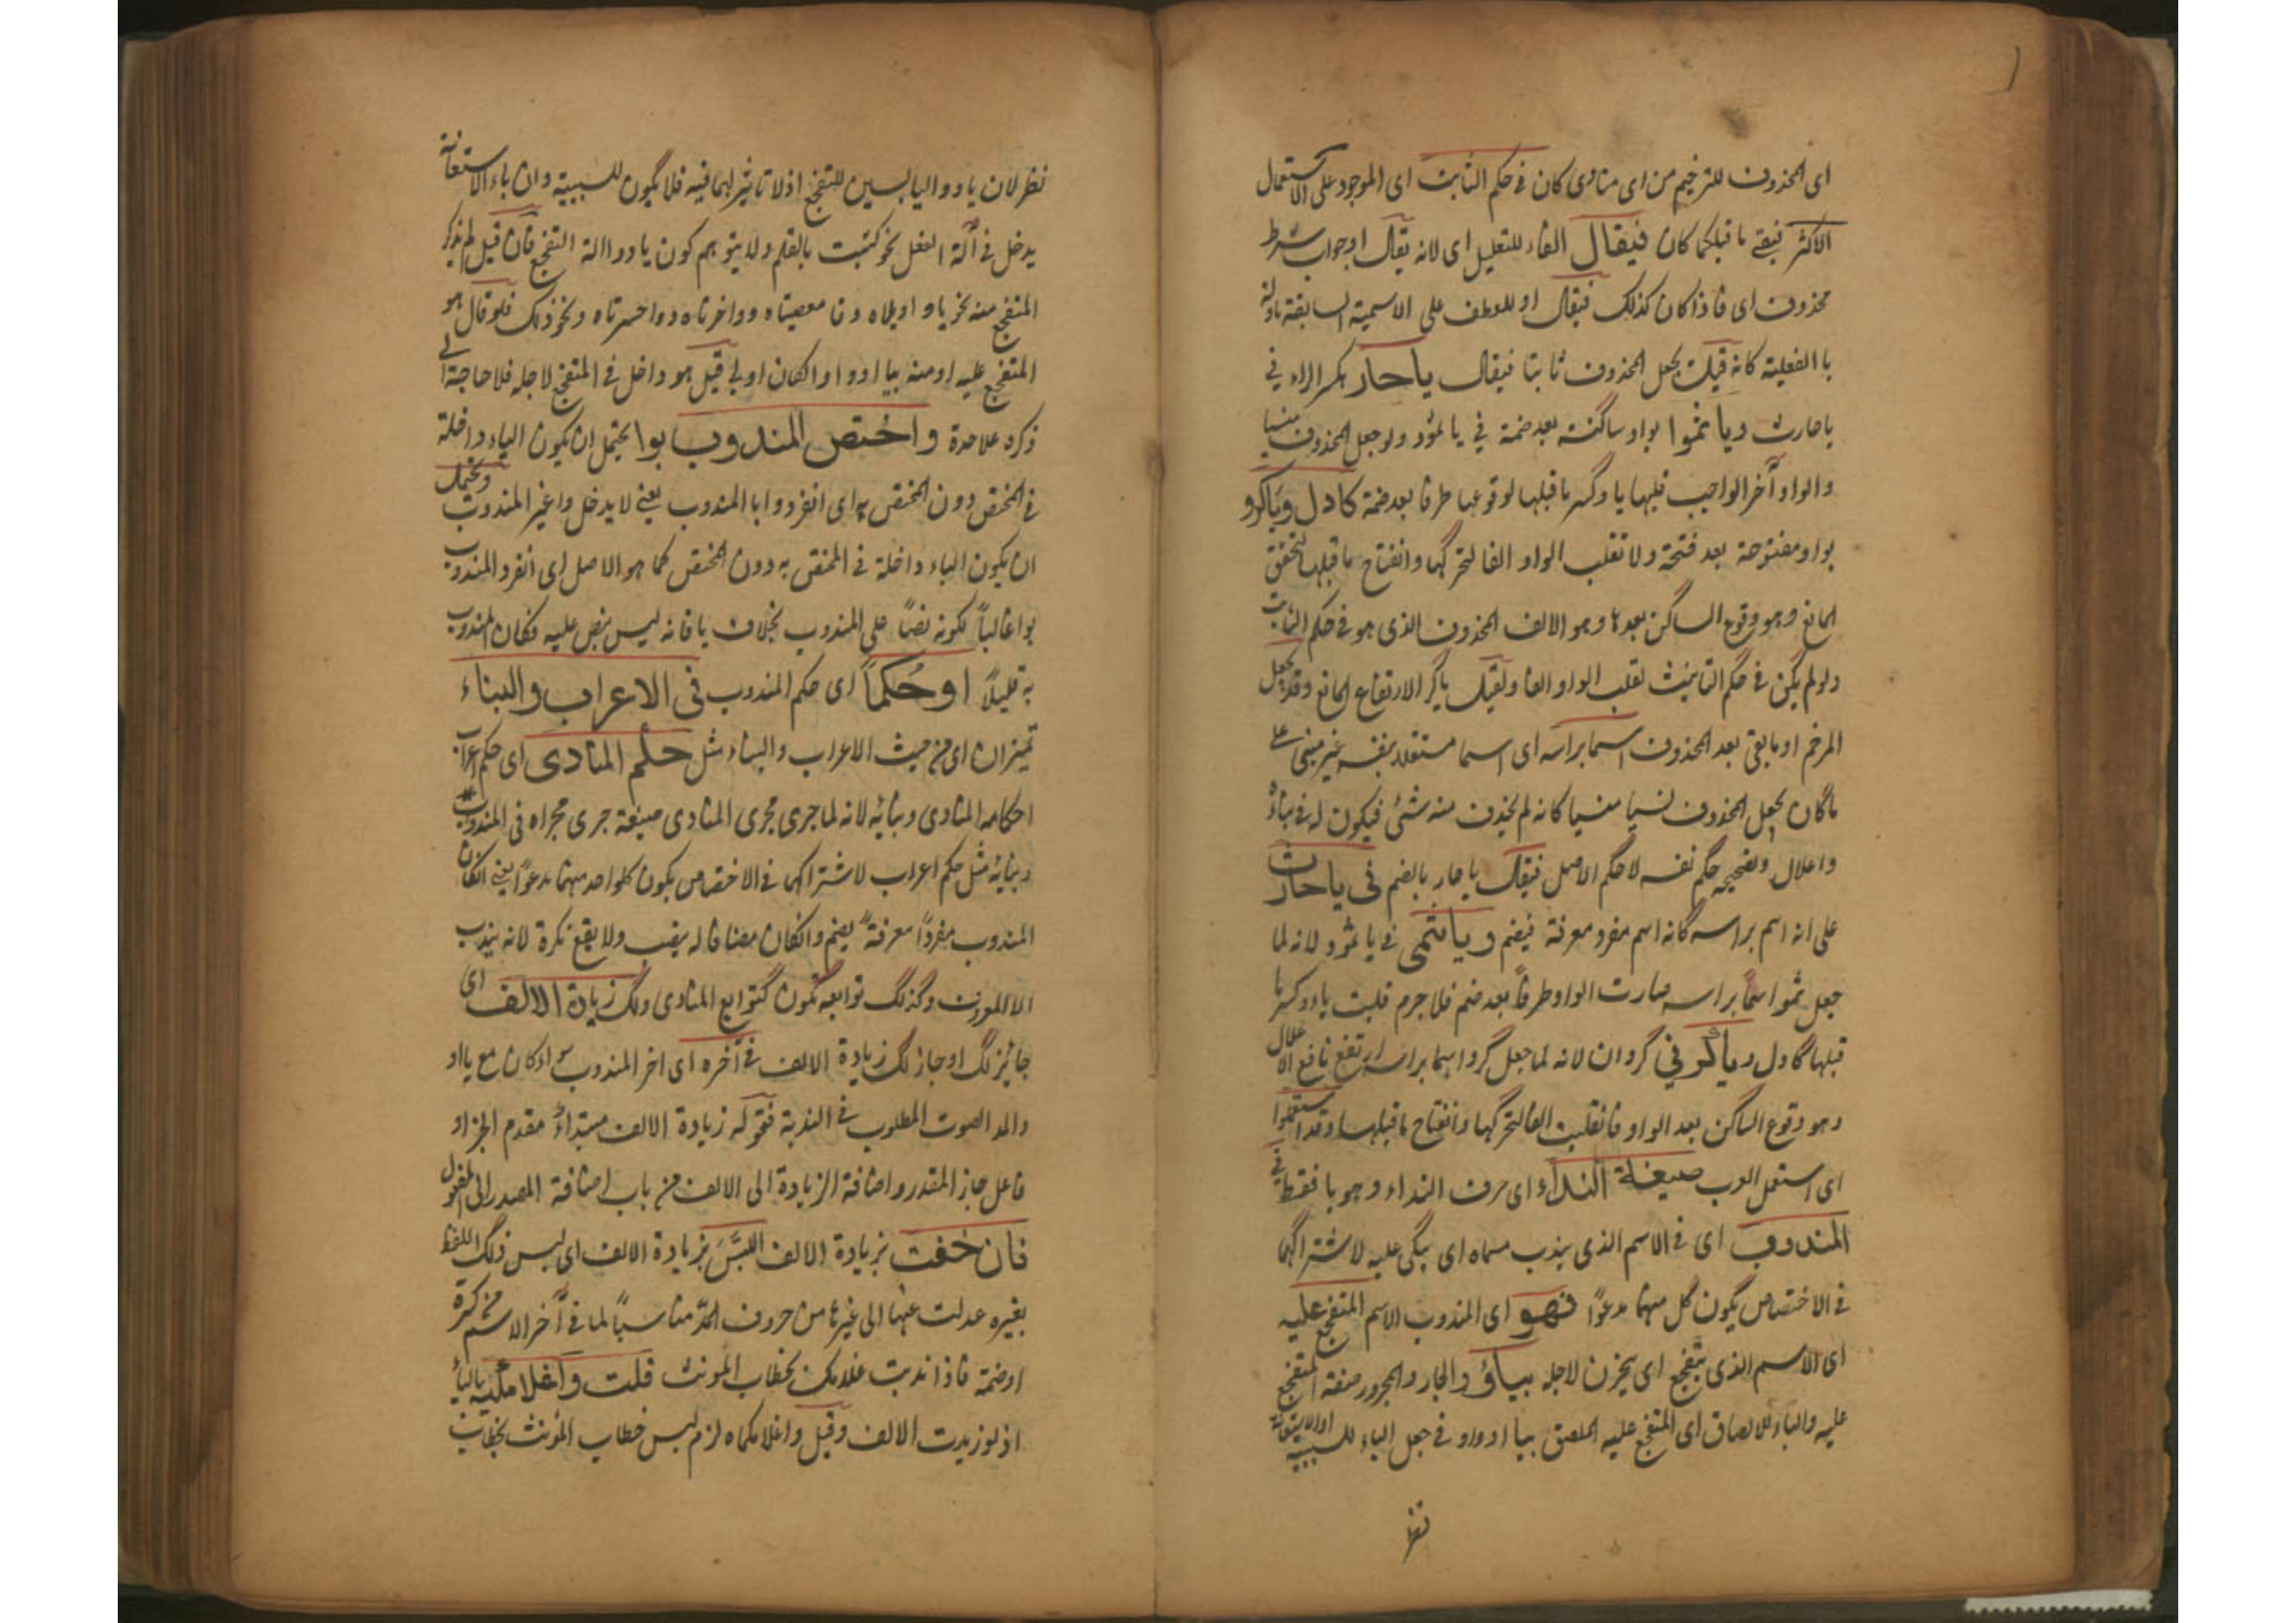 اى المحذوف للترخيم من اى منادى كان فى حكم الثابت اى الموجود على الاستعمال
الاكثر فيبقى ما قبله كما كان فيقال الفاء للتعليل اى لانه يقال او جواب شرط
محذوف اى فاذا كان كذلك فيقال او للعطف على الاسمية السابقة
با الفعلية كانه قيل يجعل المحذوف ثابتا فيقال ياحار بكسر الراء فى
يا حارث ويا ثمو بواو ساكنة بعد ضمة فى يا ثمود ولو جعل المحذوف منسيا
والواو آخر الواجب قلبها ياء وكسر ما قبلها لوقوعها طرفا بعد ضمة كادل وياكرو
بواو مفتوحة بعد فتحة ولا تقلب الواو الفا لتحركها وانفتاح ما قبلها لتحقق
المانع وهو وقوع الساكن بعدها وهو الالف المحذوف الذى هو فى حكم الثابت
ولو لم يكن فى حكم الثابت لقلبت الواو الفا ولقيل ياكرا لارتفاع المانع وقد يجعل
المرخم او ما بقى بعد المحذوف اسما براسه اى اسما مستقلا بنفسه غير مبنى على
ما كان يجعل المحذوف نسيا منسيا كانه لم يحذف منه شئ فيكون له فى بنائه
واعلال وتصحيحه حكم نفسه لا حكم الاصل فيقال يا حار بالضم فى ياحارث
على انه اسم براسه كانه اسم مفرد معرفة فيضم وياثمى فى يا ثمود لانه لما
جعل ثمو اسمًا براسه صارت الواو طرفًا بعد ضم فلا جرم قلبت ياء وكسر ما
قبلها كادل وياكرا فى كروان لانه لما جعل كرو اسما براسه ارتفع مانع الاعلال
وهو وقوع الساكن بعد الواو فانقلبت الفا لتحركها وانفتاح ما قبلها وقد استعملوا
اى استعمل العرب صيغة النداء اى حرف النداء وهو يا فقط فى
المندوب اى فى الاسم الذى يندب مسماه اى يبكى عليه لاشتراكهما
فى الاختصاص يكون كل منهما مدعوًا فهو اى المندوب الاسم المتفجع عليه
اى الاسم الذى يتفجع اى يحزن لاجله بيا او وا والجار والمجرور صفة المتفجع
عليه والباء للالصاق اى المتفجع عليه الملصق بيا او وا وفى جعل الباء للسببية او الاستعانة
نظر
نظر لان يا و وا ليا بسببين للتفجع اذ لا تاثير لهما فيه فلا يكون للسببية وان باء الاستعانة
يدخل فى آلة الفعل نحو كتبت بالقلم ولا يتوهم كون يا و وا الة التفجع فان قيل لم يذكر
المتفجع منه نحو يا ويلاه ويا معصيتاه وواحزناه وواحسرتاه ونحو ذلك فلو قال هو
المتفجع عليه او منه بيا او وا لكان اولى قيل هو داخل فى المتفجع لاجله فلا حاجة الى
ذكره علا حدة واختص المندوب بوا يحتمل ان يكون الباء داخلة
فى المختص دون المختص به اى انفرد وا بالمندوب يعنى لا يدخل وا غير المندوب ويحتمل
ان يكون الباء داخلة فى المختص به دون المختص كما هو الاصل اى انفرد المندوب
بوا غالبًا لكونه نصًا على المندوب بخلاف يا فانه ليس بنص عليه فكان المندوب
به قليلًا او حُكمًا اى حكم المندوب فى الاعراب والبناء
تميزان اى من حيث الاعراب والبناء مثل حكم المنادى اى حكم اعراب
احكامه المنادى وبنائه لانه لما جرى مجرى المنادى صيغة جرى مجراه فى المندوب
وبنائه مثل حكم اعراب لاشتراكهما فى الاختصاص يكون كلواحد منهما مدعوًا يعنى ان كان
المندوب مفردًا معرفةً يضم وان كان مضافا له ينصب ولا يقع نكرة لانه يندب
الا المعروف وكذلك توابعه تكون كتوابع المنادى ولك زيادة الالف اى
جائز لك او جاز لك زيادة الالف فى آخره اى اخر المندوب سواء كان مع يا او
والمد الصوت المطلوب فى الندبة فقوله زيادة الالف مبتداء مقدم الخبر او
فاعل جاز المقدر واضافة الزيادة الى الالف من باب اضافة المصدر الى المفعول
فان خفت بزيادة الالف اللبسَ بزيادة الالف اى لبس ذلك اللفظ
بغيره عدلت عنها الى غيرها من حروف المدّ مناسبًا لما فى آخر الاسم من كسرة
او ضمة فاذا ندبت غلامك بخطاب المونث قلت واغلامكيه بالياء
اذ لو زيدت الالف وقيل واغلامكاه لزم لبس خطاب المؤنث بخطاب